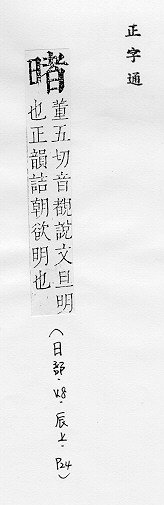 正字通
暏
董五切音覩說文旦明
也正韻詰朝欲明也
(日部·48·辰上·P24)